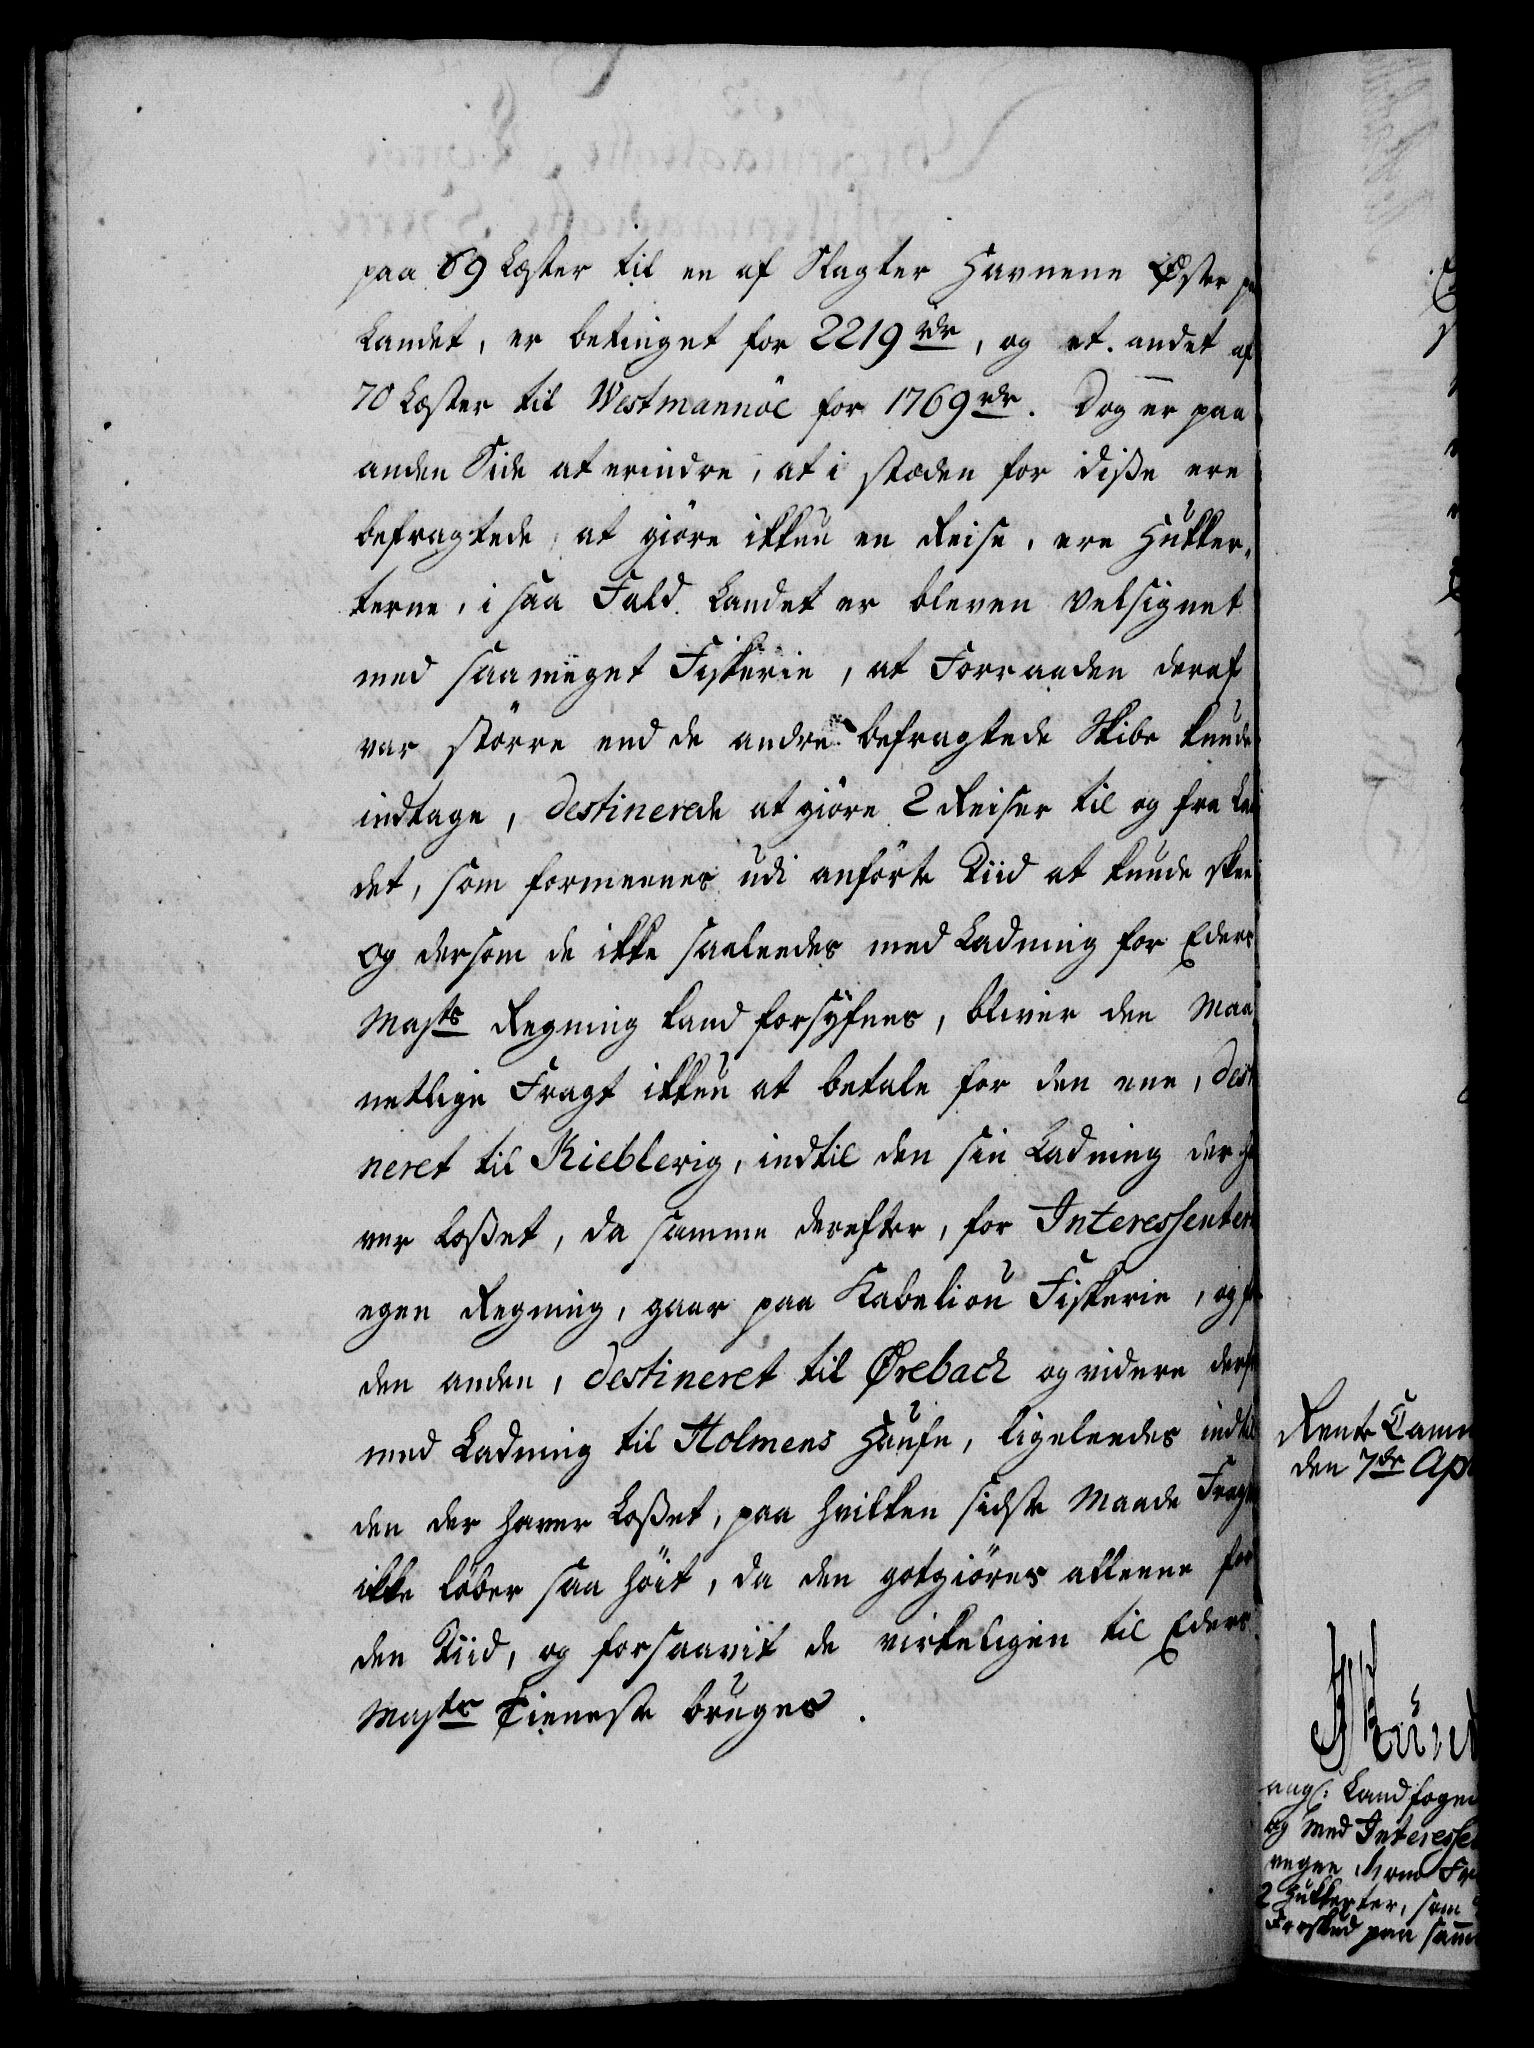 paa 69 Læster til en af Slagter Havnene Øster p
Landet, er betinget for 2219 rdr, og et andet af
70 Læster til Westmannöe for 1769 rdr. Dog er paa
anden Side at erindre, at i stæden for disse ere
befragtede at giöre ikkun en Reise, ere Hukker-
terne, i saa Fald Landet er bleven velsignet
med saa meget Fiskerie, at Forraaden deraf
var större end de andre befragtede Skibe kunde
indtage, destinerede at giöre 2 Reiser til og fra Lan
det, som formeenes udi anförte Tiid at kunde skee
og dersom de ikke saaledes med Ladning for Eders
Mayts Regning kand forsÿfnes, bliver den Maa
netlige Fragt ikkun at betale for den ene, dest
neret til Kieblewig, indtil den sin Ladning der ha
ver losset, da samme derefter, for Interessentern
egen Regning, gaar paa Kabeliou Fiskerie, og f
den anden, destineret til Ørebach og videre derf
med Ladning til Holmens Haufn, ligeleedes indtil
den der haver losset, paa hvilken sidste Maade Fragt
ikke löber saa höit, da den gotgiöres alleene for
den Tiid, og forsaavit de virkeligen til Eders
Mayts Tieneste bruges.
Rente Cam
den 7de Ap
ang: Landfoged
og med Interesse
vegne
2 Hukkerter, som
Forskud paa sam